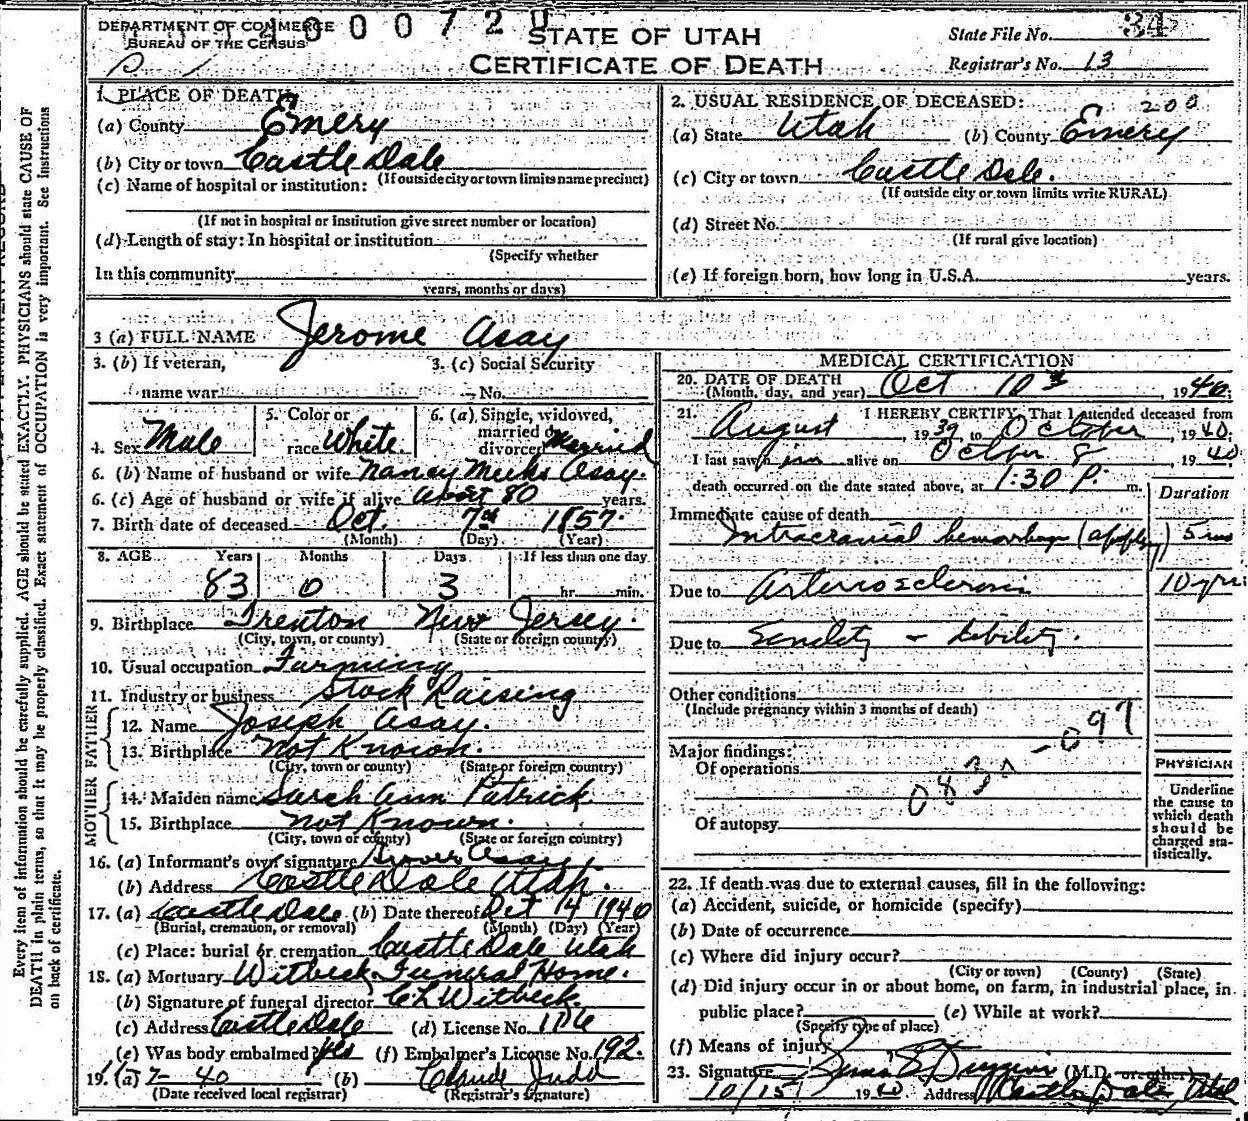 DEPARTMENT OF COMMERCE
BUREAU OF THE CENSUS
4 0 0 0 7 2 0
STATE OF UTAH
CERTIFICATE OF DEATH
State File No. 34
Registrar's No. 13
1. PLACE OF DEATH
(a) County Emery
(b) City or town Castle Dale
(If outside city or town limits name precinct)
(c) Name of hospital or institution:
(If not in hospital or institution give street number or location)
(d) Length of stay: In hospital or institution
(Specify whether
In this community
years, months or days)
2. USUAL RESIDENCE OF DECEASED: 200
(a) State Utah (b) County Emery
(c) City or town Castle Dale.
(If outside city or town limits write RURAL)
(d) Street No.
(If rural give location)
(e) If foreign born, how long in U.S.A. years.
3 (a) FULL NAME Jerome Asay
3. (b) If veteran, 3. (c) Social Security
name war No.
4. Sex Male 5. Color or race White. 6. (a) Single, widowed, married or divorced Married
6. (b) Name of husband or wife Nancy Meeks Asay.
6. (c) Age of husband or wife if alive about 80 years.
7. Birth date of deceased Oct. 7th 1857.
(Month) (Day) (Year)
8. AGE Years Months Days If less than one day
83 0 3 hr. min.
9. Birthplace Trenton New Jersey.
(City, town, or county) (State or foreign country)
10. Usual occupation Farming
11. Industry or business Stock Raising
FATHER
12. Name Joseph Asay.
13. Birthplace Not Known.
(City, town or county) (State or foreign country)
MOTHER
14. Maiden name Sarah Ann Patrick
15. Birthplace Not Known.
(City, town or county) (State or foreign country)
16. (a) Informant's own signature Grover Asay
(b) Address Castle Dale Utah.
17. (a) Castle Dale (b) Date thereof Oct 14 1940
(Burial, cremation, or removal) (Month) (Day) (Year)
(c) Place: burial or cremation Castle Dale Utah
18. (a) Mortuary Witbeck Funeral Home.
(b) Signature of funeral director C L Witbeck.
(c) Address Castle Dale (d) License No. 1106
(e) Was body embalmed? yes (f) Embalmer's License No. 192.
19. (a) 11-7-40 (b) Claude Judd
(Date received local registrar) (Registrar's signature)
MEDICAL CERTIFICATION
20. DATE OF DEATH Oct 10th 1940;
(Month, day, and year)
21. I HEREBY CERTIFY, That I attended deceased from
August 1939 to October 1940;
I last saw him alive on October 8 1940
death occurred on the date stated above, at 1:30 P. m.
Duration
Immediate cause of death
Intracranial hemorhage (apoplexy) 5
Due to Arteriosclerosis 10 yrs
Due to Senility - debility.
Other conditions
(Include pregnancy within 3 months of death)
Major findings:
Of operations
083 -097
Of autopsy
PHYSICIAN
Underline
the cause to
which death
should be
charged sta-
tistically.
22. If death was due to external causes, fill in the following:
(a) Accident, suicide, or homicide (specify)
(b) Date of occurrence
(c) Where did injury occur?
(City or town) (County) (State)
(d) Did injury occur in or about home, on farm, in industrial place, in
public place? (e) While at work?
(Specify type of place)
(f) Means of injury
23. Signature Duggins (M.D. or other)
10/15 1940 Address Castle Dale, Utah
Every item of information should be carefully supplied. AGE should be stated EXACTLY. PHYSICIANS should state CAUSE OF
DEATH in plain terms, so that it may be properly classified. Exact statement of OCCUPATION is very important. See Instructions
on back of certificate.